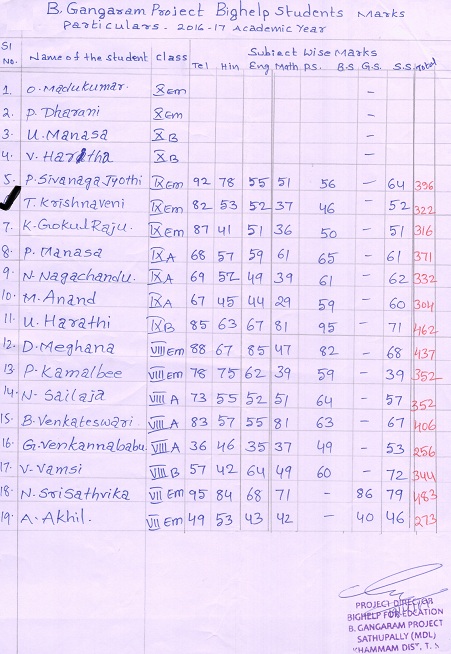 B. Gangaram Project Bighelp Students Marks
Particulars. 2016-17 Academic Year
Sl No. Name of the student Class Subject Wise Marks
Tel Hin Eng Math P.S. B.S G.S. S.S Total
1. O. Madukumar. X Em -
2. P. Dharani X Em -
3. U. Manasa X B -
4. V. Haritha X B -
5. P. Sivanaga Jyothi IX Em 92 78 55 51 56 - 64 396
T. Krishnaveni IX Em 82 53 52 37 46 - 52 322
7. K. Gokul Raju. IX Em 87 41 51 36 50 - 51 316
8. P. Manasa IX A 68 57 59 61 65 - 61 371
9. N. Nagachandu. IX A 69 52 49 39 61 - 62 332
10. M. Anand IX A 67 45 44 29 59 - 60 304
11. U. Harathi IX B 85 63 67 81 95 - 71 462
12. D. Meghana VIII Em 88 67 85 47 82 - 68 437
13. P. Kamalbee VIII Em 78 75 62 39 59 - 39 352
14. N. Sailaja VIII A 73 55 52 51 64 - 57 352
15. B. Venkateswari. VIII A 83 57 55 81 63 - 67 406
16. G. Venkannababu VIII A 36 46 35 37 49 - 53 256
17. V. Vamsi VIII B 57 42 64 49 60 - 72 344
18. N. Sri Sathvika VII Em 95 84 68 71 - 86 79 483
19. A. Akhil. VII Em 49 53 43 42 - 40 46 273
PROJECT DIRECTOR
BIGHELP FOR EDCATION
B. GANGARAM PROJECT
SATHUPALLY (MDL)
KHAMMAM DIST, T.S